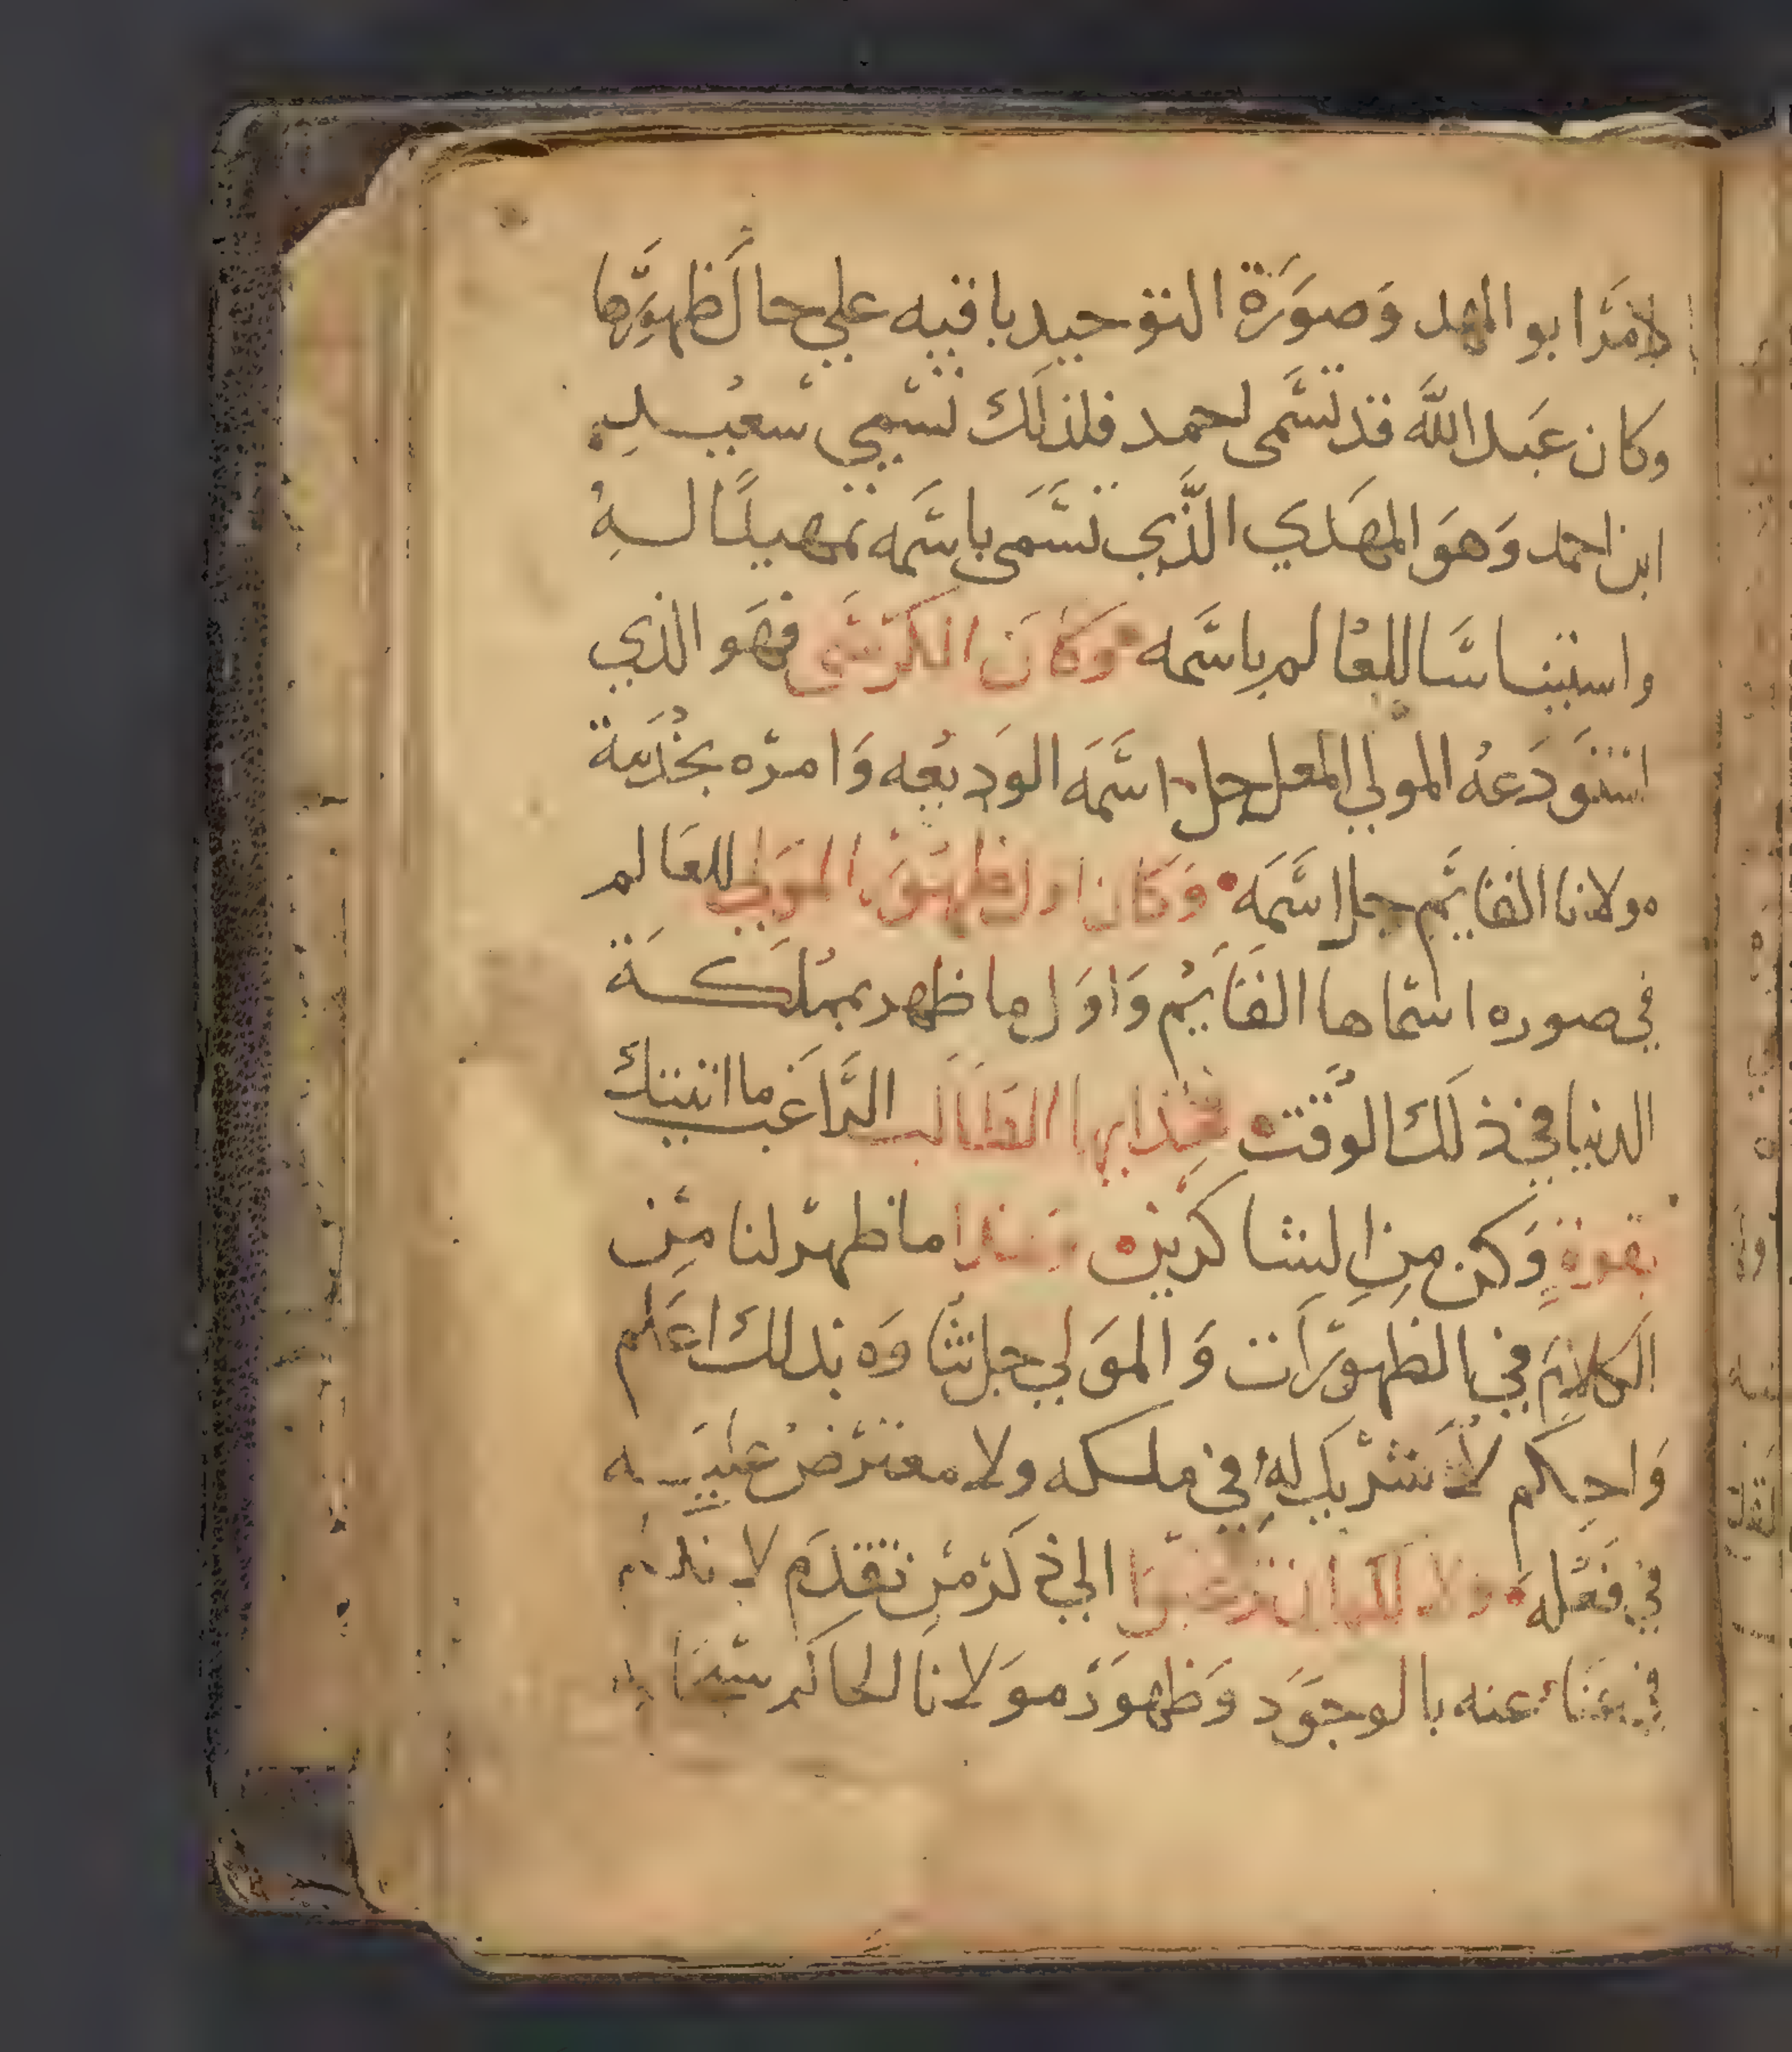 لامر ابو المهد وَصوَرَة التوحيد باقيه علي حال ظهوَرها
وكان عَبد الله قد تسَمى احمد فلذلك تسَمي سَعيد
ابن احمد وَهوَ المهَدي الذَّي تسَمى باسَمه تمهيدًا لهُ
واستيناسَا للعالم باسَمه وَكاَن الكرسَى فهَو الذي
استوَدَعهُ المولي المعل جل اسَمَه الوَديعه وَامرَه بخدَمة
مولانا القايَم جل اسَمَه وَكان اول ظهوَر الموَلي للعَالم
في صوره اسَماها القَايَم وَاوَل ما ظهر بمملَكة
الدنيا في ذلَك الوَقت فخذ ايها الطاَلب الرَاغَب ما اتيتك
بقوَة وَكن من الشاكرين وَهذا ما ظهرَ لنا مَن
الكلامَ في الظهوَراَت وَالموَلي جل ثناَوَه بذلك اعَلم
وَاحكَم لاَ شرَيك لهُ في ملكه ولا معترَض عليَه
في فعَله ولا لكم ان ترجعوَا الي ذكَر مَن تقدَم لانكم
في غنَا عنه بالوجوَد وَظهوَر موَلانا الحاكَم سبحَانه